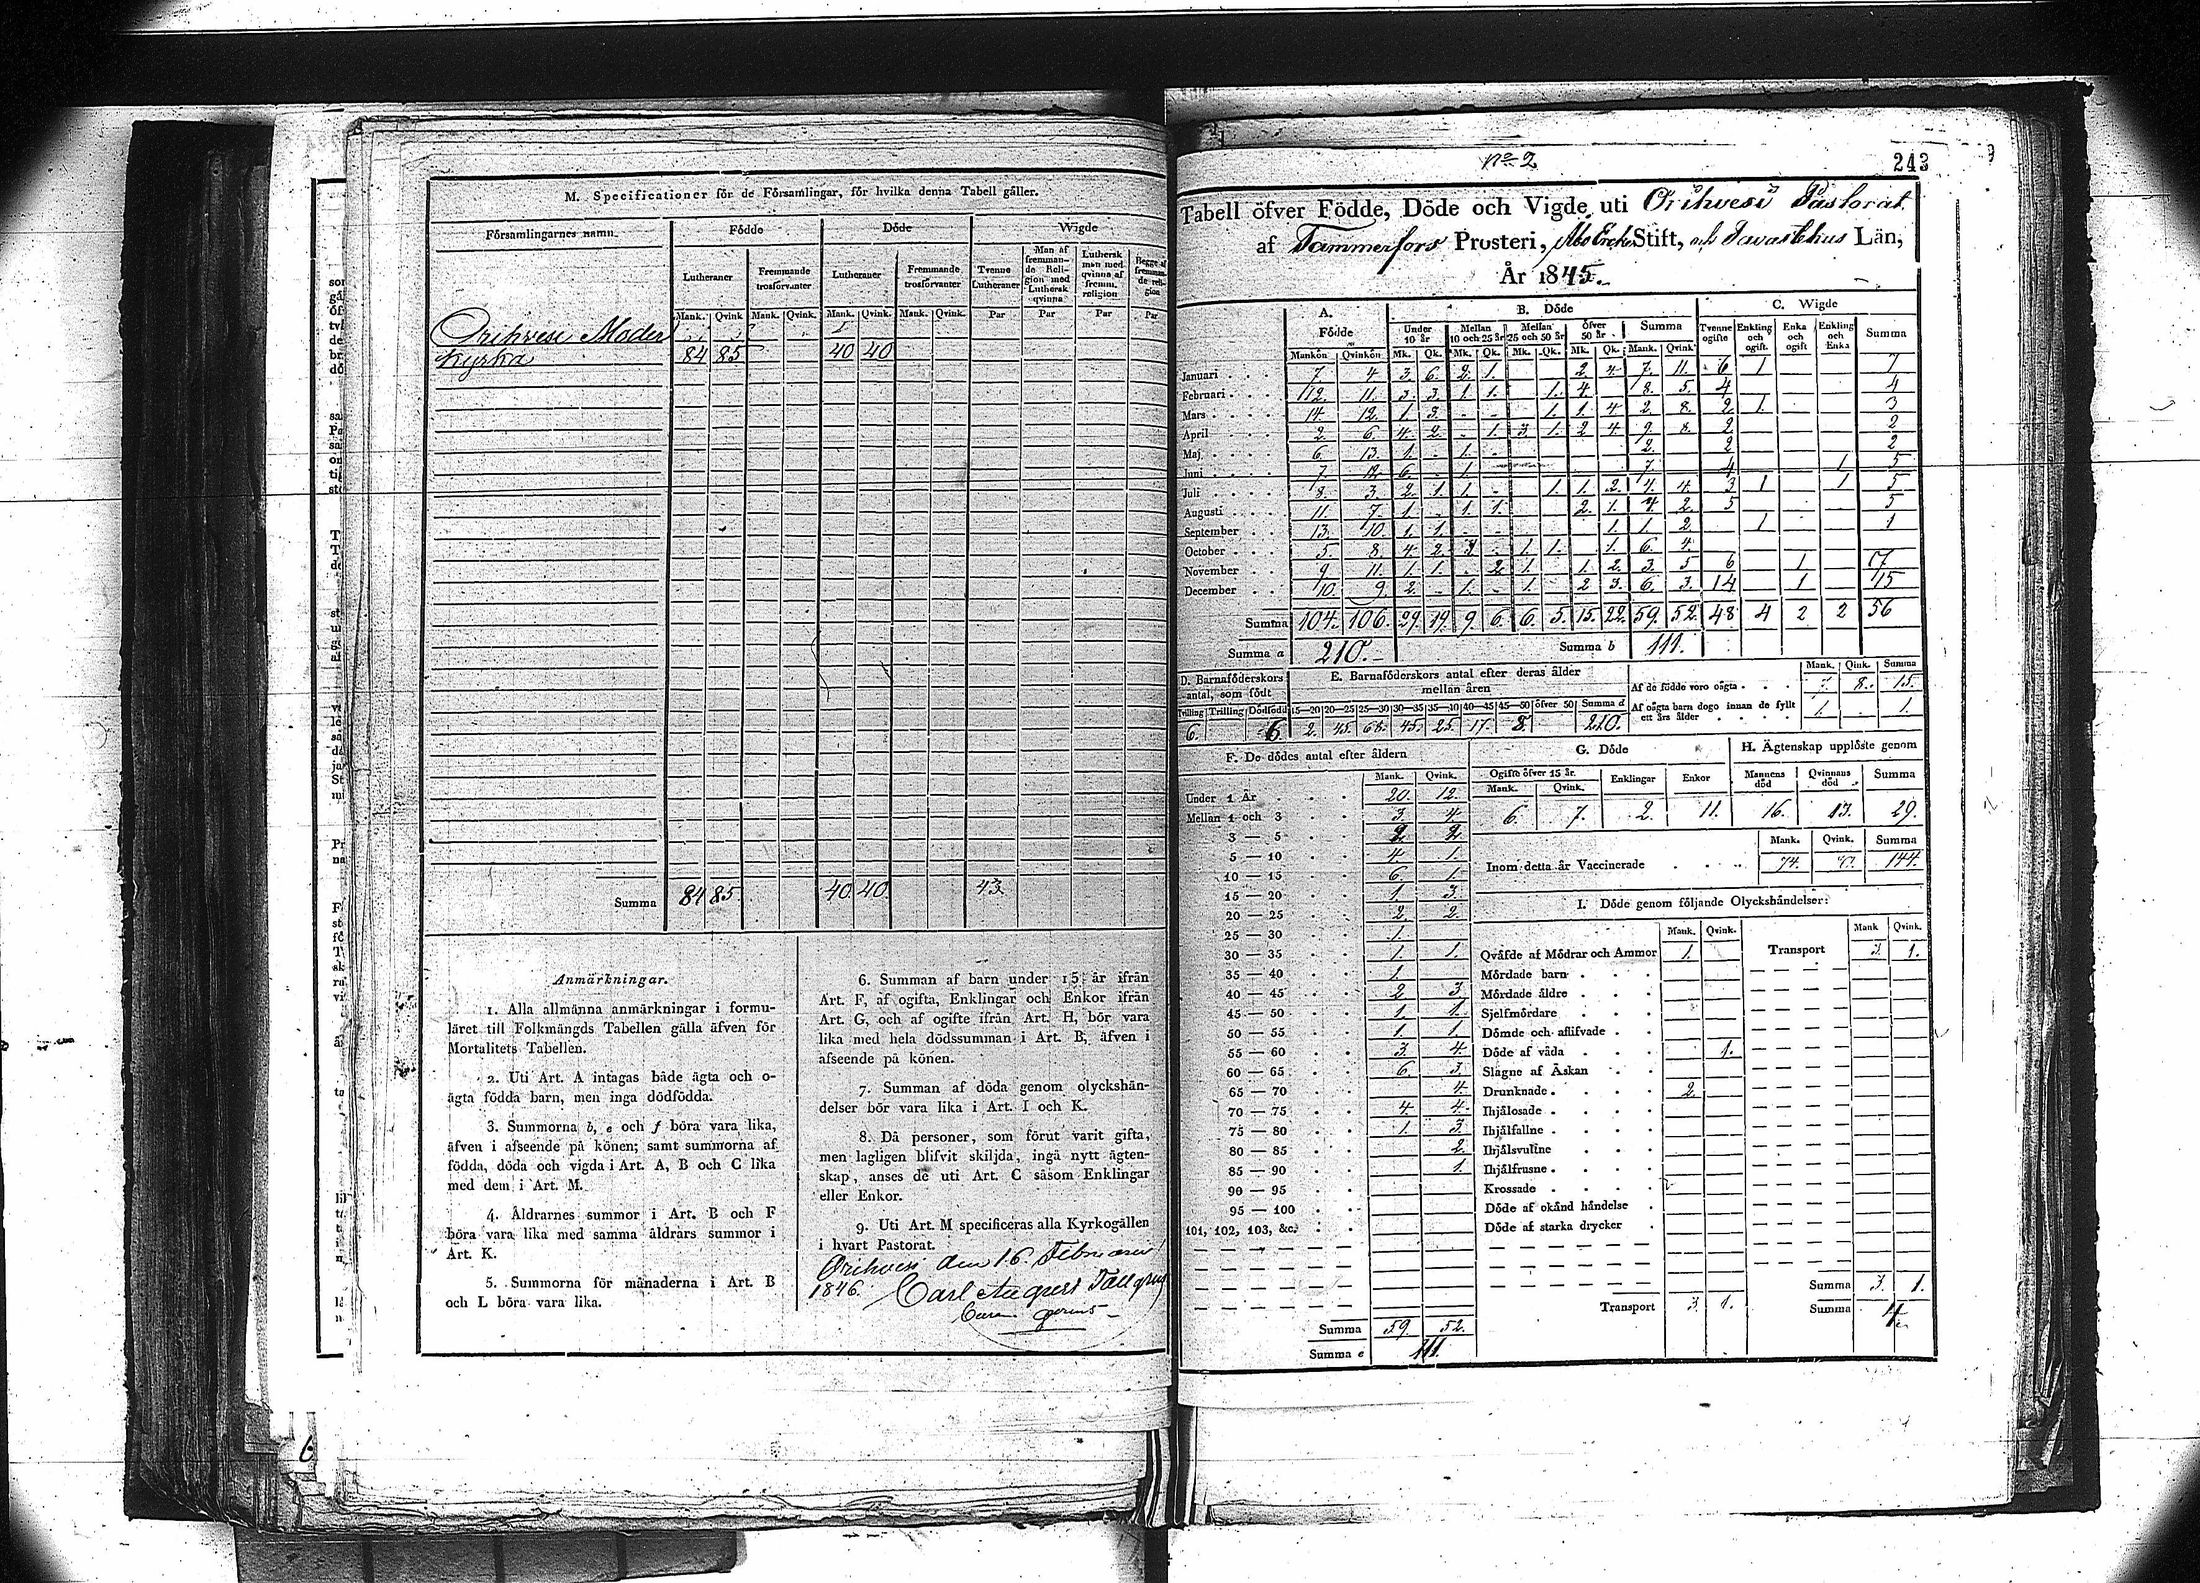 M. Specificationer för de Församlingar, för hvilka denna Tabell gäller.
Församlingarnes namn. Födde Döde Wigde
Lutheraner Fremmande trosförvanter Lutheraner Fremmande trosförvanter Tvenne Lutheraner Man af fremmande Religion med Luthersk qvinna Luthersk man med qvinna af fremm. religion Begge af fremmande religion
Mank. Qvink Mank. Qvink. Mank. Qvink. Mank. Qvink. Par Par Par Par
Orihvesi Moder
Kyrka 84 85 40 40
Summa 84 85. 40. 40. 43.
Anmärkningar.
1. Alla allmänna anmärkningar i formu-
läret till Folkmängds Tabellen gälla äfven för
Mortalitets Tabellen.
2. Uti Art. A intagas både ägta och o-
ägta födda barn, men inga dödfödda.
3. Summorna b, e och f böra vara lika,
äfven i afseende på könen; samt summorna af
födda, döda och vigda i Art. A, B och C lika
med dem i Art. M.
4. Åldrarnes summor i Art. B och F
böra vara lika med samma åldrars summor i
Art. K.
5. Summorna för månaderna i Art. B
och L böra vara lika.
6. Summan af barn under 15 år ifrån
Art. F, af ogifta, Enklingar och Enkor ifrån
Art. G, och af ogifte ifrån Art. H, bör vara
lika med hela dödssumman i Art. B, äfven i
afseende på könen.
7. Summan af döda genom olyckshän-
delser bör vara lika i Art. I och K.
8. Då personer, som förut varit gifta,
men lagligen blifvit skiljda, ingå nytt ägten-
skap, anses de uti Art. C såsom Enklingar
eller Enkor.
9. Uti Art. M specificeras alla Kyrkogällen
i hvart Pastorat.
Orihvesi den 16 Februari
1846. Carl August Tallgren
6
No 2
243
Tabell öfver Födde, Döde och Vigde uti Orihvesi Pastorat
af Tammerfors Prosteri, Åbo Erke Stift, och Tavastehus Län,
År 1845.
A. Födde B. Döde C. Wigde
Under 10 år Mellan 10 och 25 år Mellan 25 och 50 år Öfver 50 år Summa Tvenne ogifte Enkling och ogift. Enka och ogift Enkling och Enka Summa
Mankön Qvinkön Mk. Qk. Mk. Qk. Mk. Qk. Mk. Qk. Mank. Qvink
Januari 7. 4 3. 6. 2. 1. 2. 4. 7. 11. 6 1 7
Februari 12. 11. 3. 3. 1 1. 1. 4. 8. 5. 4 4
Mars 14 12. 1. 3. 1. 1. 4 2. 8. 2. 1. 3
April 2. 6. 4. 2. 1. 3. 1. 2 4. 9. 8. 2 2
Maj 6 13. 1. 1. 2. 2 2
Juni 7. 12. 6. 1. 7. 4 1 5
Juli 8. 3. 2. 1. 1. 1. 1. 2. 4. 4. 3 1 1 5
Augusti 11. 7. 1. 1. 1. 2. 1. 4. 2. 5 5
September 13. 10. 1. 1. 1. 1. 2. 1 1
October 5. 8. 4. 2. 1. 1. 1. 6. 4.
November 9 11. 1. 1. 2. 1. 1. 2. 3. 5 6 1 7
December 10. 9. 2. 1. 1. 2 3. 6. 3. 14 1 15
Summa 104. 106. 29. 19. 9 6. 6. 5. 15. 22. 59. 52. 48 4 2 2 56
Summa a 210. Summa b 111.
D. Barnaföderskors antal, som födt E. Barnaföderskors antal efter deras ålder mellan åren
Tvilling Trilling Dödfödd 15—20 20—25 25—30 30—35 35—40 40—45 45—50 öfver 50 Summa d
6. 6 2. 45. 68. 45. 25. 17. 8. 210.
Mank. Qink. Summa
Af de födde voro oägta 7. 8. 15.
Af oägta barn dogo innan de fyllt ett års ålder 1. 1.
F. De dödes antal efter åldern
Mank. Qvink.
Under 1 År 20. 12.
Mellan 1 och 3 3. 4
3 — 5 2. 2.
5 — 10 4. 1.
10 — 15 6. 1.
15 — 20 1. 3.
20 — 25 2. 2.
25 — 30 1.
30 — 35 1. 1.
35 — 40 1.
40 — 45 2. 3.
45 — 50 1. 1.
50 — 55 1. 1.
55 — 60 3. 4.
60 — 65 6. 3.
65 — 70 4.
70 — 75 4. 4.
75 — 80 1. 3.
80 — 85 2.
85 — 90 1.
90 — 95
95 — 100
101, 102, 103, &c.
Summa 59. 52.
Summa e 111.
G. Döde H. Ägtenskap upplöste genom
Ogifte öfver 15 år. Mank. Qvink. Enklingar Enkor Mannens död Qvinnans död Summa
6. 7. 2. 11. 16. 13. 29.
Mank. Qvink. Summa
Inom detta år Vaccinerade 74. 144.
I. Döde genom följande Olyckshändelser:
Mank. Qvink. Mank Qvink.
Qväfde af Mödrar och Ammor 1. Transport 3. 1.
Mördade barn
Mördade äldre
Sjelfmördare
Dömde och aflifvade
Döde af våda 1.
Slagne af Åskan
Drunknade 2.
Ihjälosade
Ihjälfallne
Ihjälsvultne
Ihjälfrusne
Krossade
Döde af okänd händelse
Döde af starka drycker
Summa 3. 1.
Transport 3. 1. Summa 4.